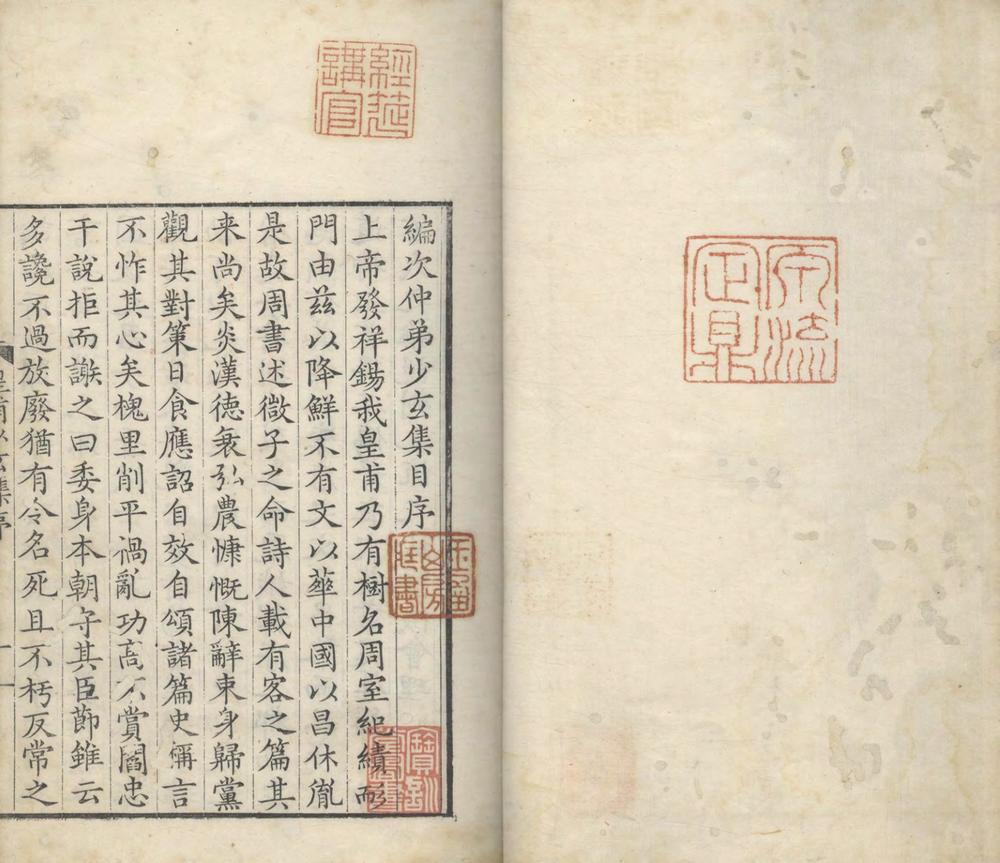 經筵講官
編次仲弟少玄集目序
上帝發祥錫我皇甫乃有樹名周室紀績彤
門由茲以降鮮不有文以華中國以昌休胤
是故周書述微子之命詩人載有客之篇其
来尚矣炎漢德衰弘農慷慨陳辭束身歸黨
觀其對策日食應詔自效自頌諸篇史稱言
不怍其心矣槐里削平禍亂功高不賞閻忠
干說拒而謝之曰委身本朝守其臣節雖云
多讒不過放廢猶有令名死且不朽反常之
皇甫少玄集序
一